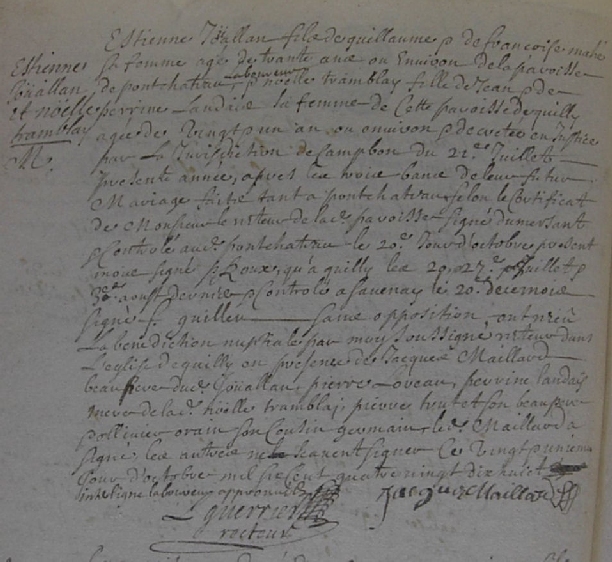 Estienne Joüallan fils de guillaume & de francoise mahé
sa femme agé de trante ans ou Environ de la paroisse
Estienne
Joüallan
et noëlle
tramblay
M.
de pontchateau laboureur & noëlle tramblay fille de Jean & de
perrine Landais sa femme de Cette paroisse de quilly
agée de Vingt un an ou environ & decretée en Justice
par La Jurisdiction de Campbon du 21e Juillet
presente année, apres les trois bans de leur futur
Mariage faits tant a pontchateau selon le Certificat
de Monsieur le recteur de lad. paroisse signé dumersant
& Controlé aud. pontchateau le 20e Jour d'octobre present
mois signé Roux, qu'a quilly les 20. 27e Juillet &
aoust dernier & Controlé a Sauenay le 20e dece mois
signé quiller sans opposition ont receu
La benediction nuptale par moy soussigné recteur dans
L'eglise de quilly en presence de Jacques Maillard
beaufrere dud. Joüallan, pierre Loveau, perrine landais
mere de lad. noëlle tramblay, pierre son beaupere
& ollivier oram son Cousin germain, led. Maillard a
signé les autres ne scauent signer Ce Vingt unieme
Jour d'octobre mil six Cent quatre vingt dix huict
interligne laboureur approuvé
Jacques Maillard
L guerrier
recteur